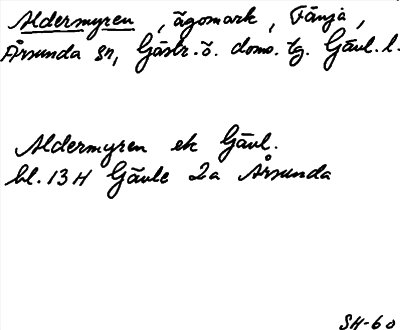 Aldermyren, ägomark, Fänja,
Årsunda sn, Gästr. ö. doms. tg. Gävl. l.
Aldermyren ek Gävl.
bl. 13 H Gävle 2a Årsunda
SH-60